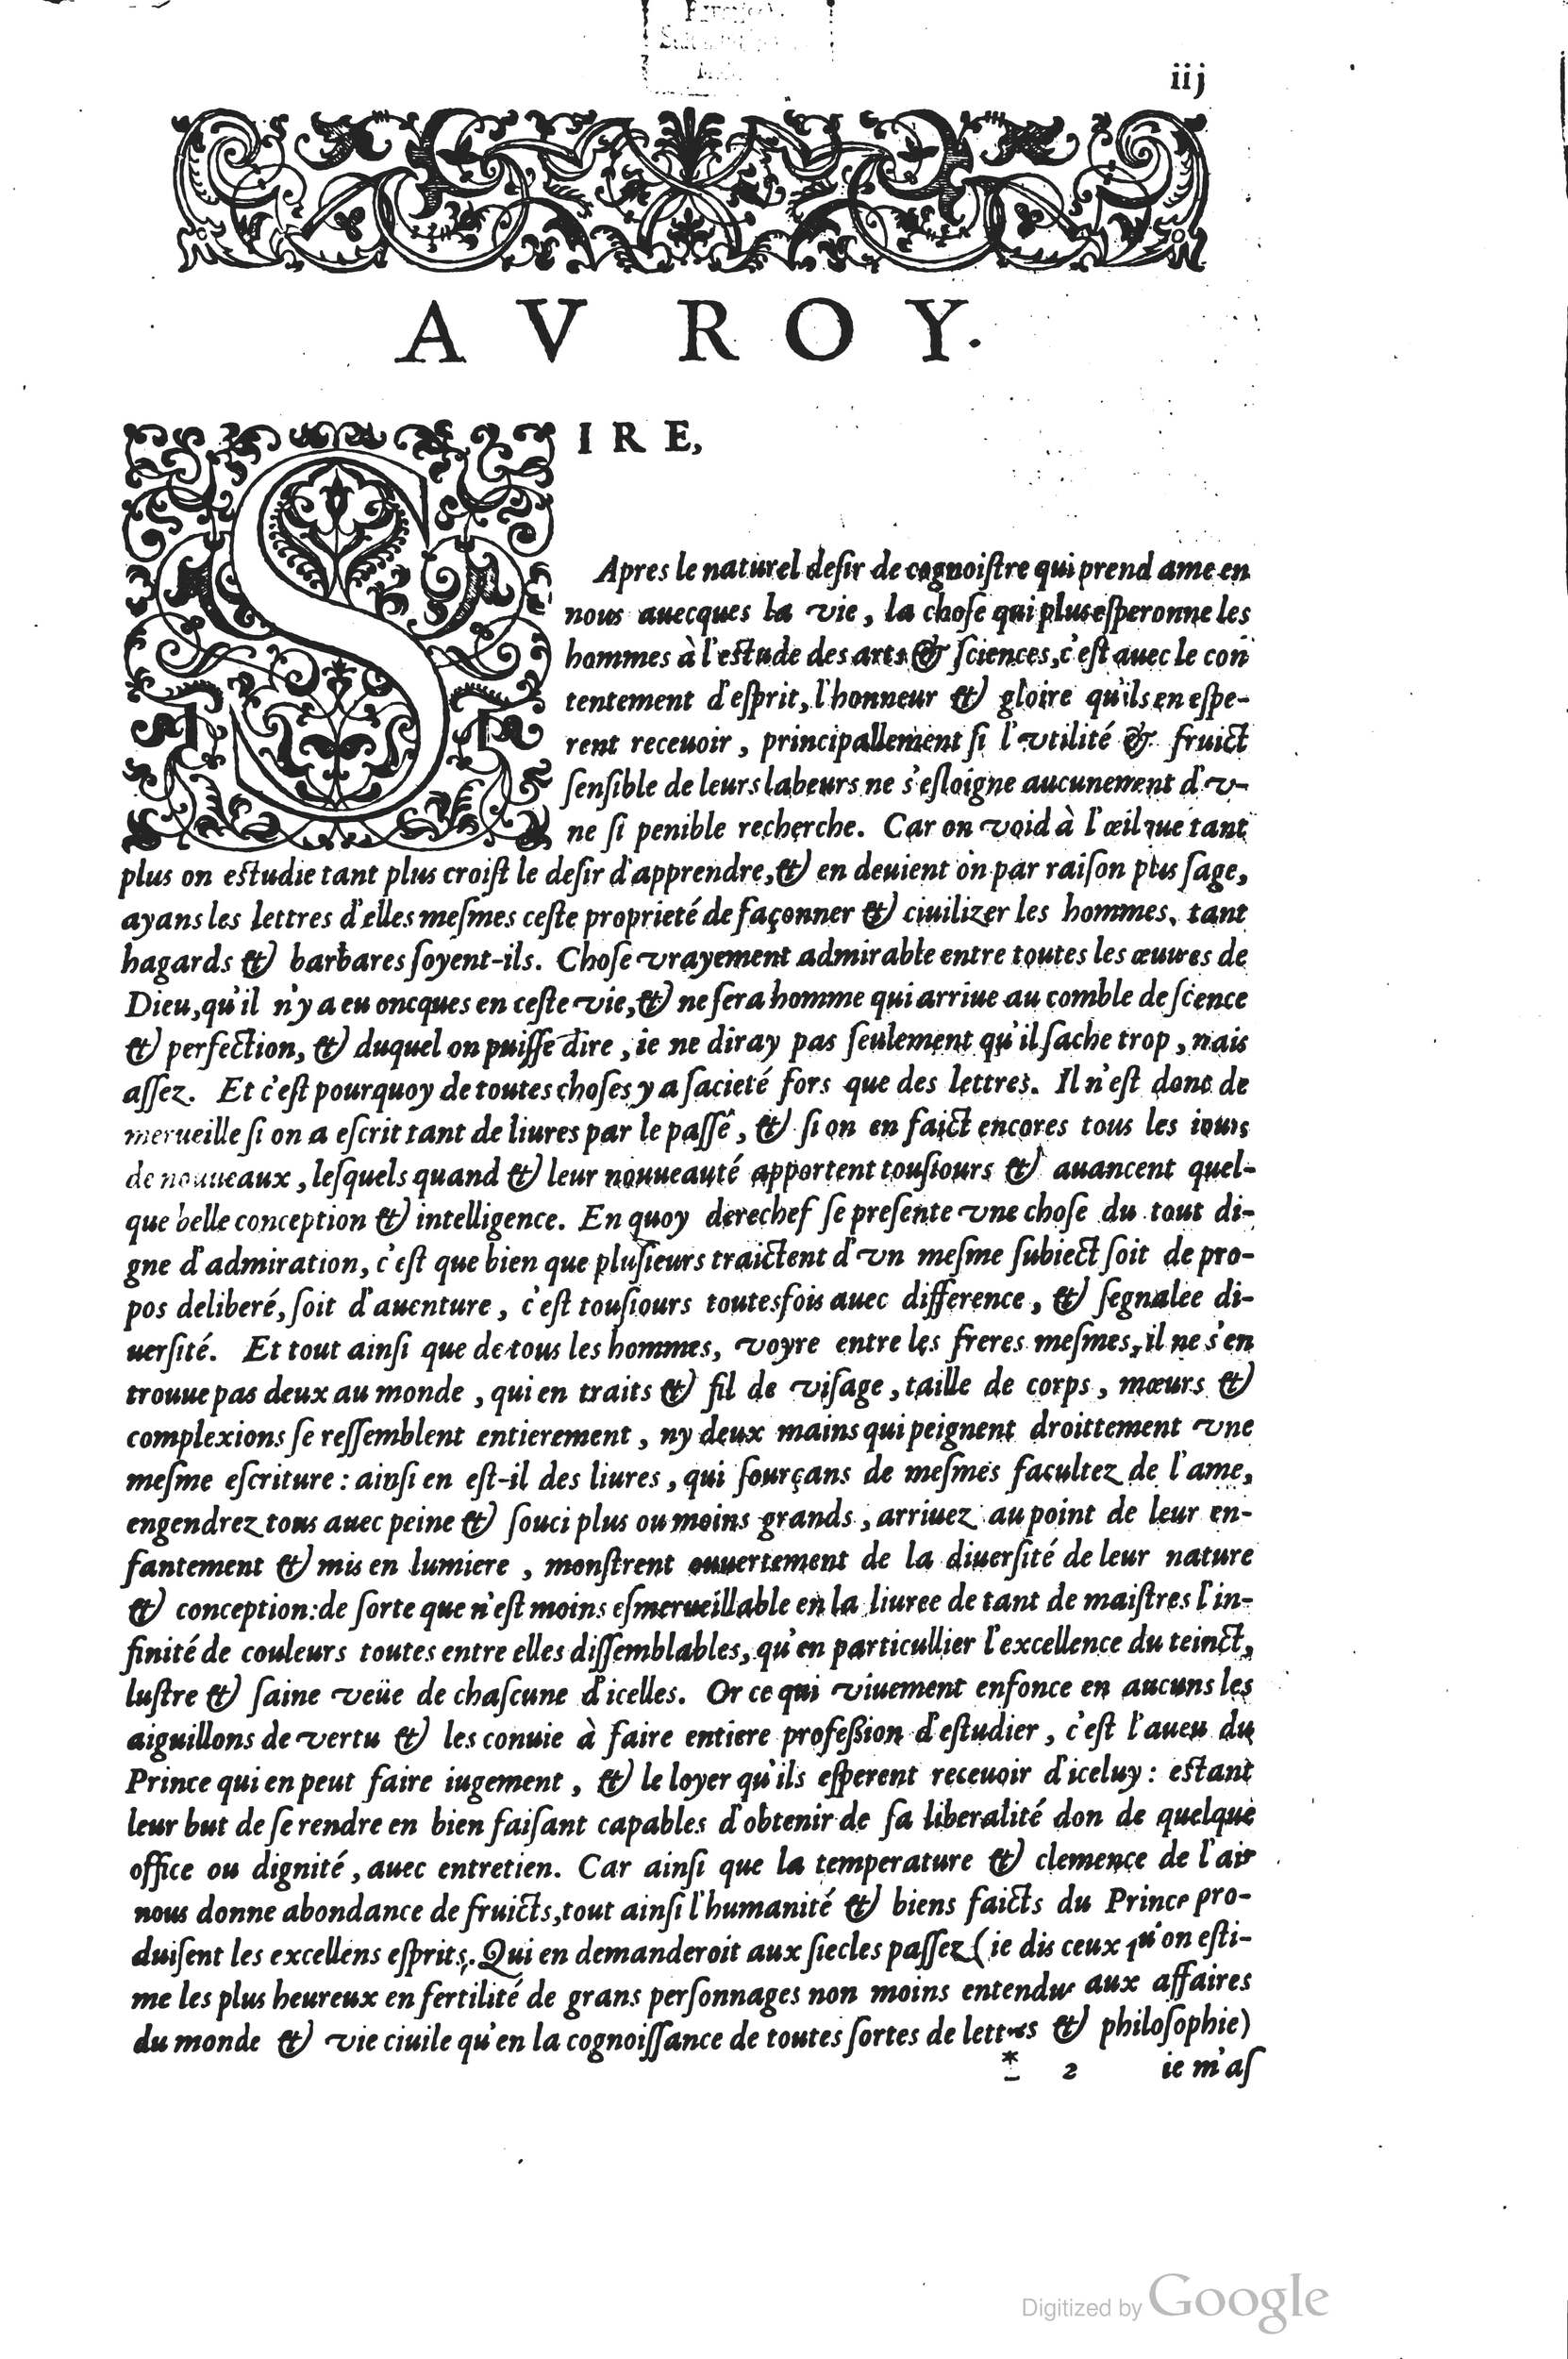 iij
AV ROY.
SIRE,
Apres le naturel deſir de cognoiſtre qui prend ame en
nous auecques la vie, la choſe qui plus eſperonne les
hommes à l'eſtude des arts & ſciences, c'eſt auec le con
tentement d'eſprit, l'honneur & gloire qu'ils en eſpe-
rent receuoir, principallement ſi l'vtilité & fruict
ſenſible de leurs labeurs ne s'eſloigne aucunement d'v-
ne ſi penible recherche. Car on void à l'œil que tant
plus on eſtudie tant plus croiſt le deſir d'apprendre, & en deuient on par raiſon plus ſage,
ayans les lettres d'elles meſmes ceſte proprieté de façonner & ciuilizer les hommes, tant
hagards & barbares ſoyent-ils. Choſe vrayement admirable entre toutes les œuures de
Dieu, qu'il n'y a eu oncques en ceſte vie, & ne ſera homme qui arriue au comble de ſcience
& perfection, & duquel on puiſſe dire, ie ne diray pas ſeulement qu'il ſache trop, mais
aſſez. Et c'eſt pourquoy de toutes choſes y a ſacieté fors que des lettres. Il n'eſt donc de
merueille ſi on a eſcrit tant de liures par le paſſé, & ſi on en faict encores tous les iours
de nouueaux, leſquels quand & leur nouueauté apportent touſiours & auancent quel-
que belle conception & intelligence. En quoy derechef ſe preſente vne choſe du tout di-
gne d'admiration, c'eſt que bien que pluſieurs traictent d'vn meſme ſubiect ſoit de pro-
pos deliberé, ſoit d'auenture, c'eſt touſiours toutesfois auec difference, & ſegnalee di-
uerſité. Et tout ainſi que de tous les hommes, voyre entre les freres meſmes, il ne s'en
trouue pas deux au monde, qui en traits & fil de viſage, taille de corps, mœurs &
complexions ſe reſſemblent entierement, ny deux mains qui peignent droittement vne
meſme eſcriture: ainſi en eſt-il des liures, qui ſourçans de meſmes facultez de l'ame,
engendrez tous auec peine & ſouci plus ou moins grands, arriuez au point de leur en-
fantement & mis en lumiere, monſtrent ouuertement de la diuerſité de leur nature
& conception: de ſorte que n'eſt moins eſmerueillable en la liuree de tant de maiſtres l'in-
finité de couleurs toutes entre elles diſſemblables, qu'en particullier l'excellence du teinct,
luſtre & ſaine veüe de chaſcune d'icelles. Or ce qui viuement enfonce en aucuns les
aiguillons de vertu & les conuie à faire entiere profeßion d'eſtudier, c'eſt l'aueu du
Prince qui en peut faire iugement, & le loyer qu'ils eſperent receuoir d'iceluy: eſtant
leur but de ſe rendre en bien faiſant capables d'obtenir de ſa liberalité don de quelque
office ou dignité, auec entretien. Car ainſi que la temperature & clemence de l'air
nous donne abondance de fruicts, tout ainſi l'humanité & biens faicts du Prince pro-
duiſent les excellens eſprits. Qui en demanderoit aux ſiecles paſſez (ie dis ceux qu'on eſti-
me les plus heureux en fertilité de grans perſonnages non moins entendus aux affaires
du monde & vie ciuile qu'en la cognoiſſance de toutes ſortes de lettres & philoſophie)
* 2 ie m'aſ
Digitized by Google